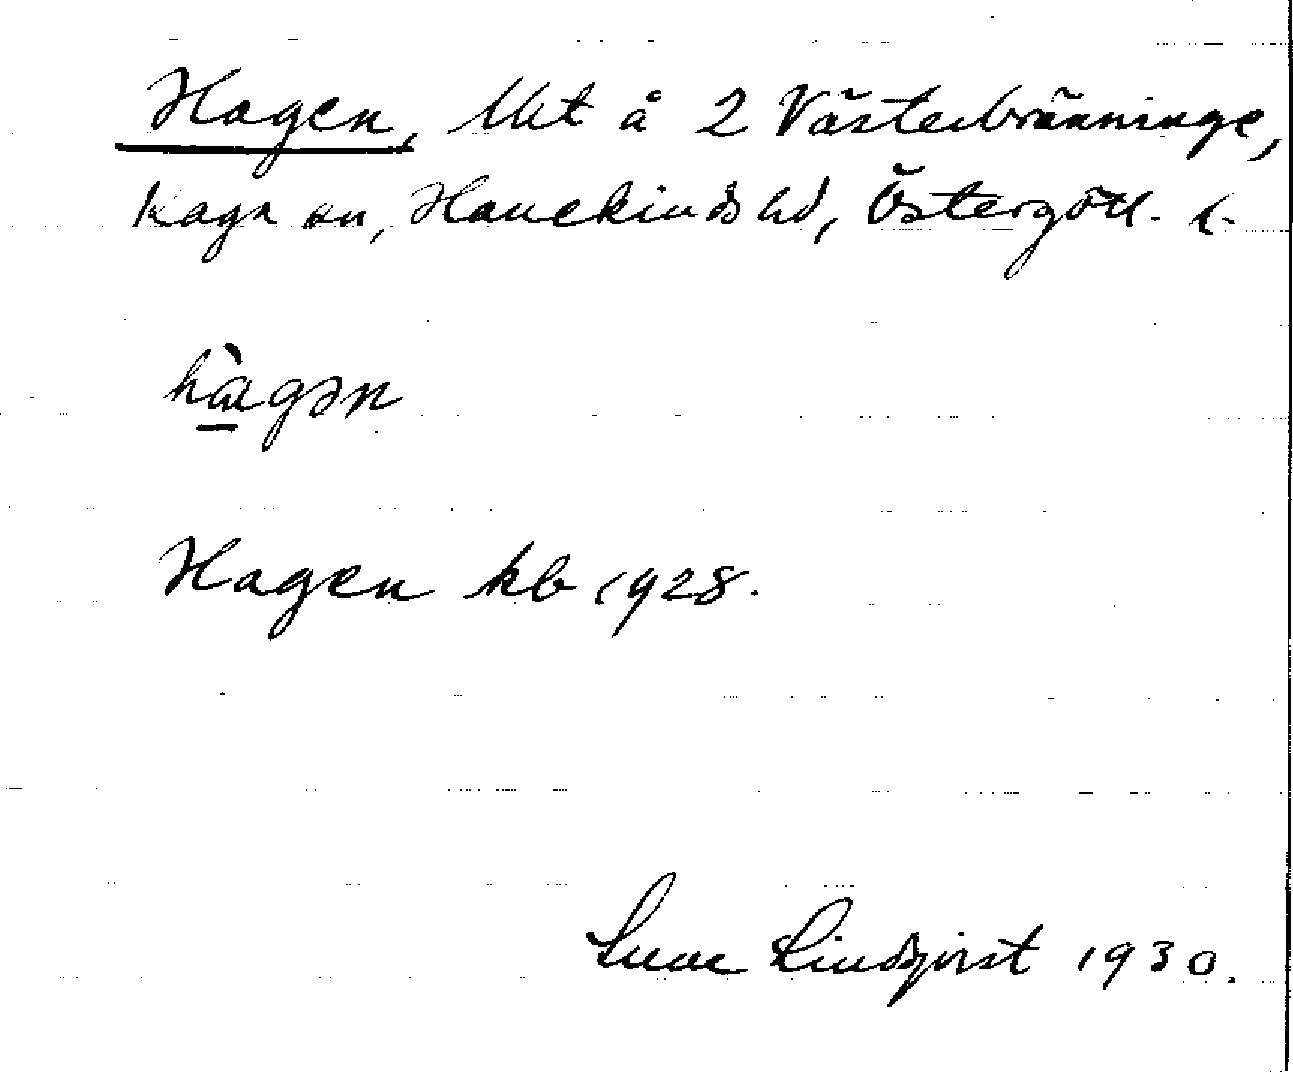 Hagen, lht å 2 Västerbränninge,
Kaga sn, Hanekinds hd, Östergötl. l.
hàgən
Hagen kb 1928.
Sune Lindqvist 1930.